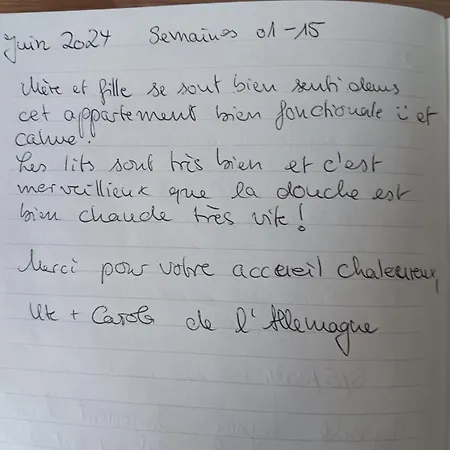 Juin 2024 Semaines 01-15
Mère et fille se sont bien senti dans
cet appartement bien fonctionale et
calme.
Les lits sont très bien et c'est
merveillieux que la douche est
bien chaude très vite!
Merci pour votre accueil chaleureux,
Ute + Carola de l'Allemagne